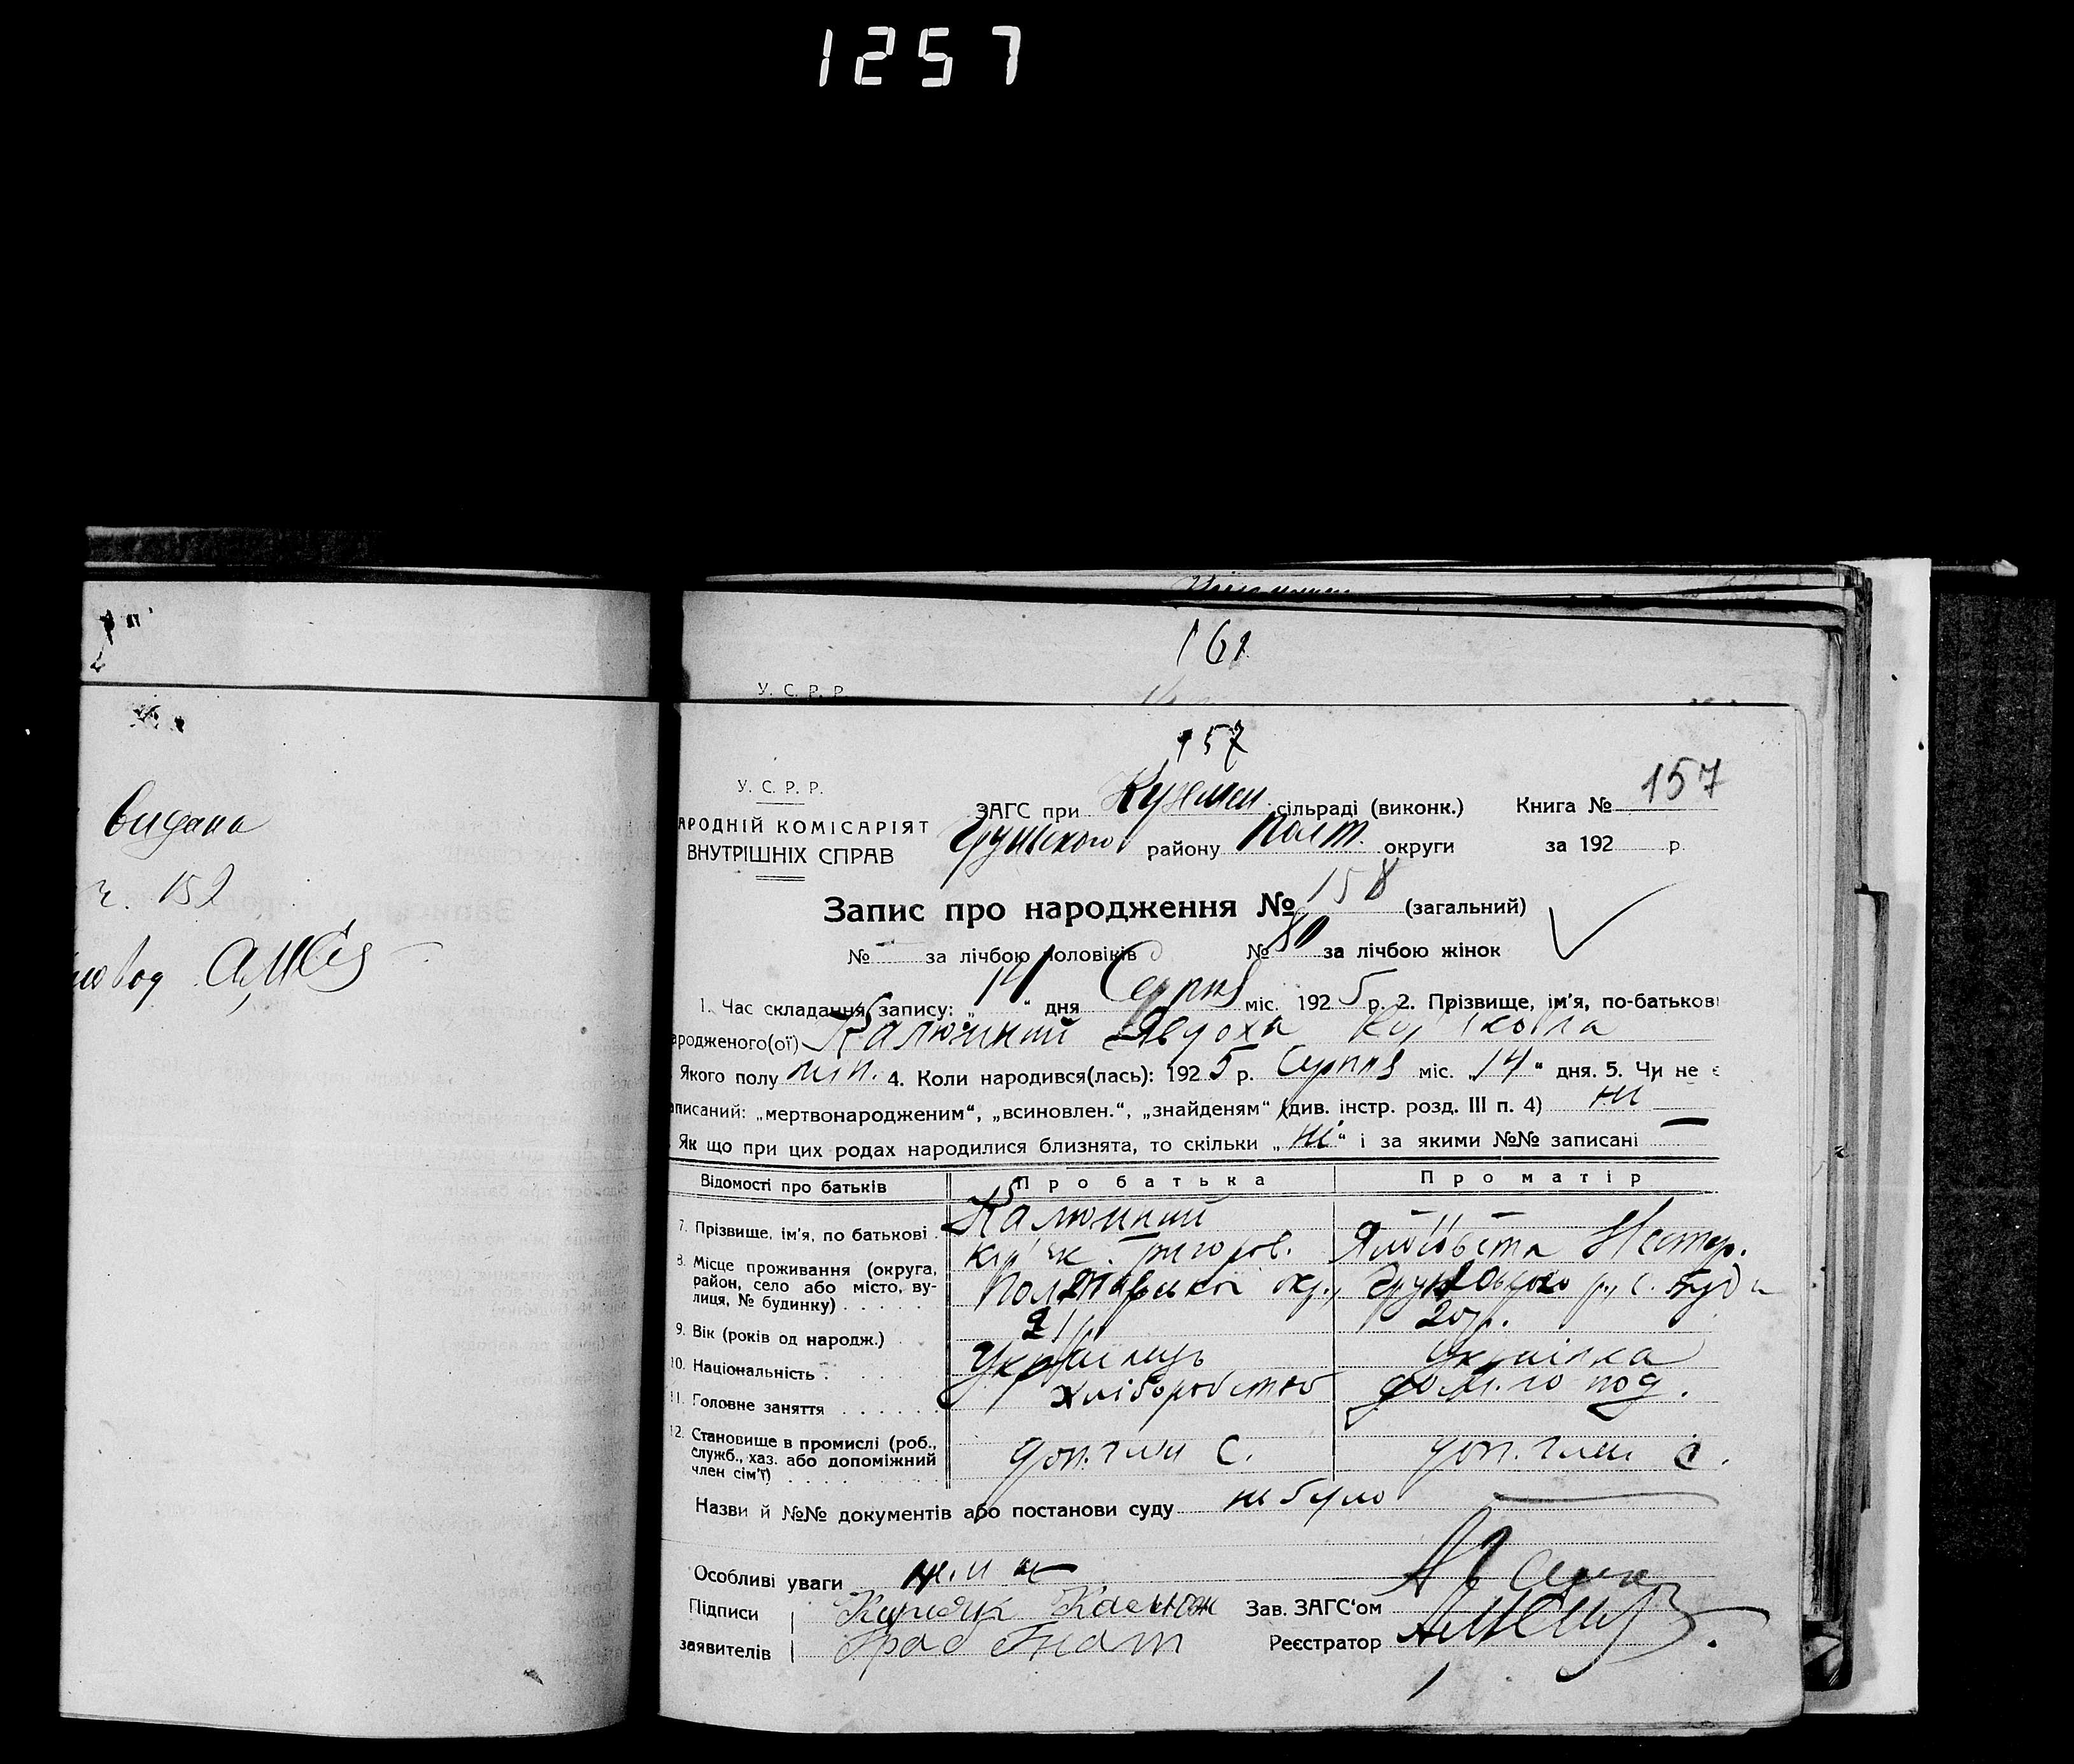 1257
161
У. С. Р. Р.
видана
152
157
У. С. Р. Р.
АРОДНІЙ КОМІСАРІЯТ
ВНУТРІШНІХ СПРАВ
ЗАГС при Куземен. сільраді (виконк.) Книга № 157
Грунського району Полт. округи за 192 р.
Запис про народження № 158 (загальний)
№ — за лічбою чоловіків № 80 за лічбою жінок
1. Час складання запису: „14“ дня Серпня міс. 1925 р. 2. Прізвище, ім'я, по-батькові
ародженого(ої) Калюжний Явдоха
Якого полу жін. 4. Коли народився(лась): 1925 р. Серпня міс. „14“ дня. 5. Чи не є
аписаний: „мертвонародженим“, „всиновлен.“, „знайденям“ (див. інстр. розд. III п. 4) ні
Як що при цих родах народилися близнята, то скільки „ні“ і за якими №№ записані —
Відомості про батьків Про батька Про матір
7. Прізвище, ім'я, по батькові Калюжний
Григоров. Нестер.
8. Місце проживання (округа, район, село або місто, ву-
лиця, № будинку) Полтавської окр., Грунського р., с.
9. Вік (років од народж.) 21 р. 20 р.
10. Національність Українець Українка
11. Головне заняття хліборобство дом. го под.
12. Становище в промислі (роб.,
служб., хаз. або допоміжний
член сім'ї) доп. член с. доп. член с.
Назви й №№ документів або постанови суду не було
Особливі уваги
Підписи Кирияк Калюж Зав. ЗАГС'ом
заявителів Граб Гнат Реєстратор